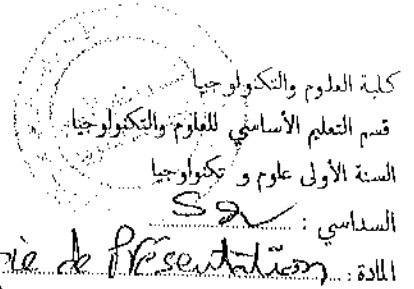 كلية العلوم والتكنولوجيا
قسم التعليم الأساسي للعلوم والتكنولوجيا
السنة الأولى علوم و تكنولوجيا
السداسي :
المادة : de Présentation